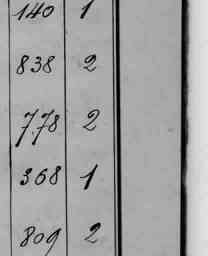 140 1
838 2
778 2
368 1
809 2